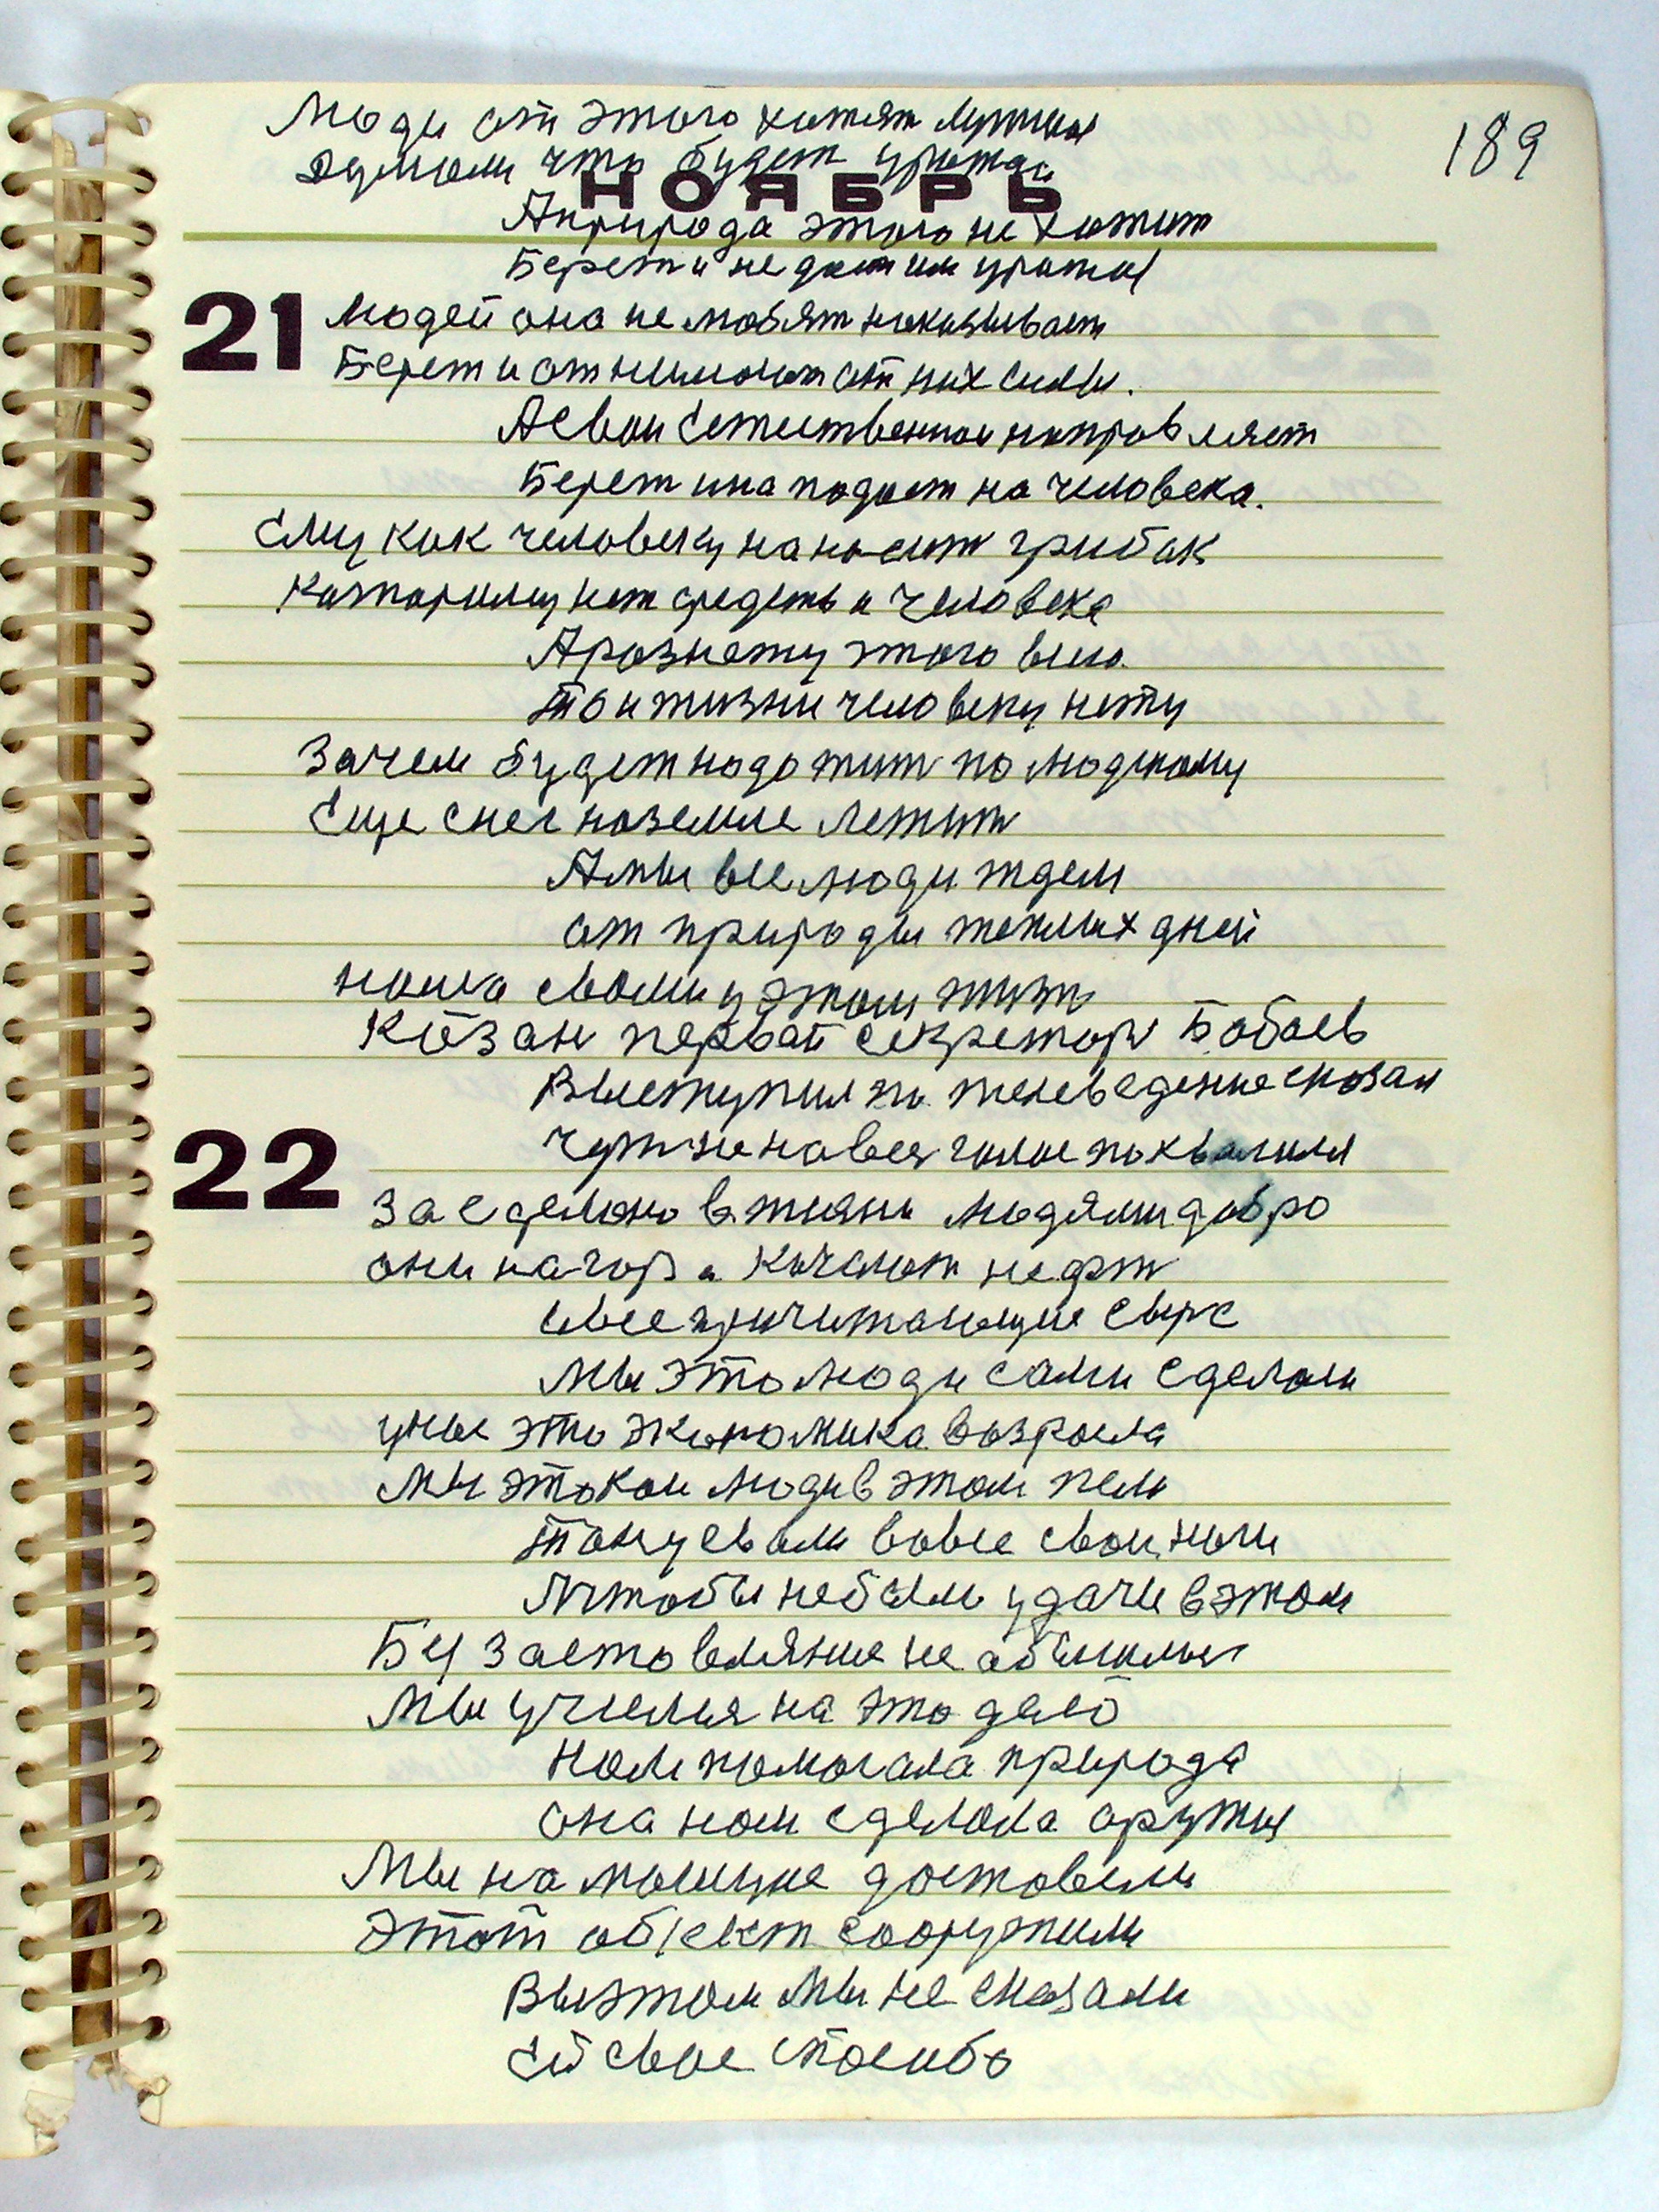 189
Люди от этого хотят лучшие
Думали что будет урожаи
НОЯБРЬ
А природа этого не хотит
Берет и не дает им урожая
21
Людей она не любят наказывает
Берет и отнимают от них силы.
А свои естественное направляет
Берет и нападает на человека.
Ему как человеку наносит грибок
Которому нет средств и человека
А раз нету этого всего
То и жизни человеку нету
Зачем будет надо жит по людскому
Еще снег на земле лежит
А мы все люди ждем
от природы теплых дней
надо самому этом жит
Казан первай секретарь Бобоев
Выступил по телеведение сказал
Чут не на весь голос похвалился
22
За сделоно в жизни людями добро
они на гора качают нефт
и все причитающие сыре
Мы это люди сами сделали
у нас это экономика возросла
Мы этокои люди в этом пели
Танцевали во все свои ноги
А чтобы не были удачи в этом
Без заставляние не обошлись
Мы учился на это дело
Нам помогала природа
она нам сделала оружия
Мы на машине доставели
Этот обьект сооружили
Вы этом мы не сказали
Ей свое спасибо